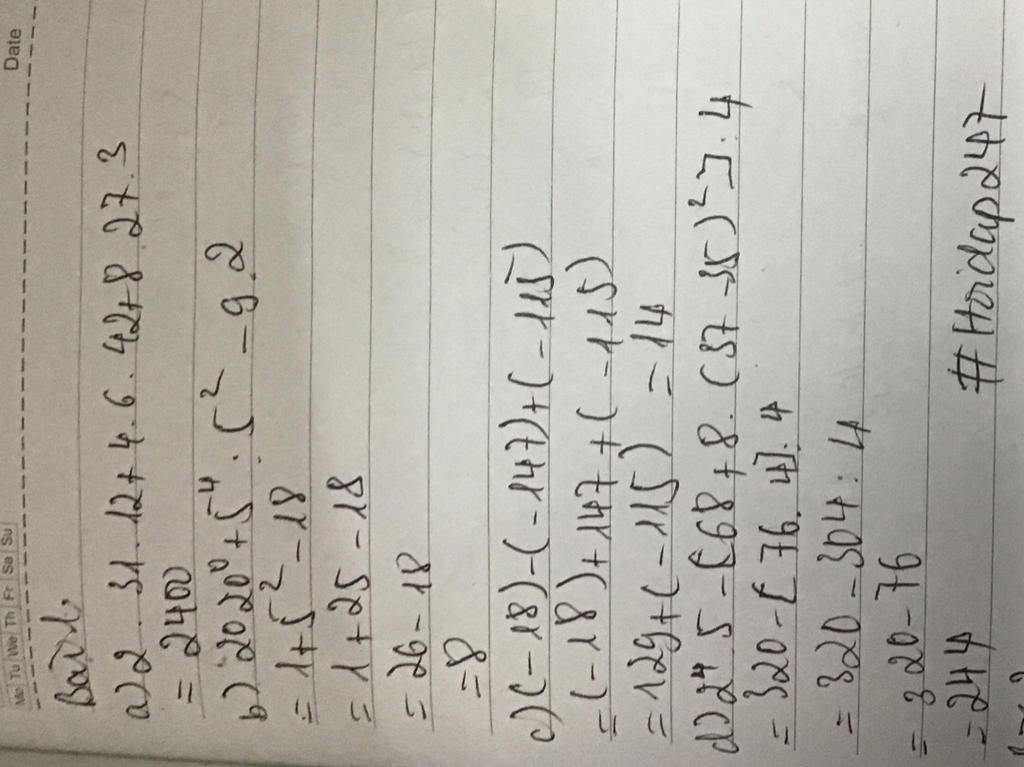 Date
Mo Tu We Th Fr Sa Su
Bài1.
a) 2 . 31 . 12 + 4 . 6 . 42 + 8 . 27 . 3
= 2400
b) 2020⁰ + 5⁴ : 5² - 9 . 2
= 1 + 5² - 18
= 1 + 25 - 18
= 26 - 18
= 8
c) (-18) - (-147) + (-115)
= (-18) + 147 + (-115)
= 129 + (-115) = 14
d) 2⁴ . 5 - [68 + 8 . (37 - 35)²] : 4
= 320 - [76 . 4] : 4
= 320 - 304 : 4
= 320 - 76
= 244
#Hoidap247